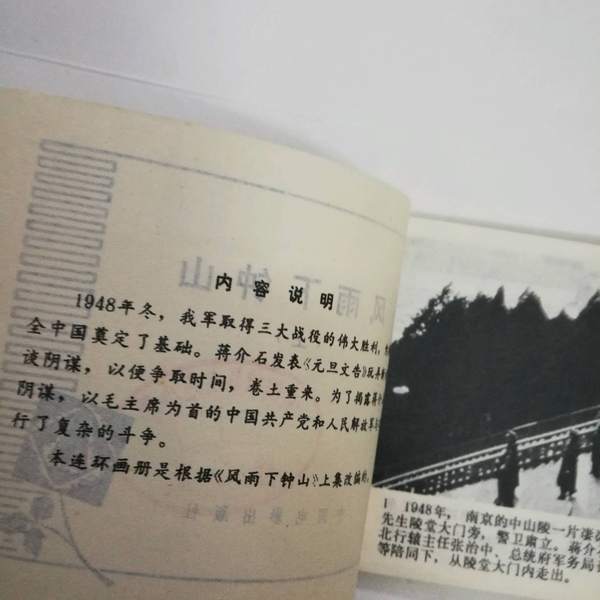 内容说明
1948年冬，我军取得三大战役的伟大胜利，
全中国奠定了基础。蒋介石发表《元旦文告》玩弄
谈阴谋，以便争取时间，卷土重来。为了揭露蒋
阴谋，以毛主席为首的中国共产党和人民解放军
行了复杂的斗争。
本连环画册是根据《风雨下钟山》上集改编的。
风雨下钟山
1 1948年，南京的中山陵一片凄
先生陵堂大门旁，警卫肃立。蒋介
北行辕主任张治中、总统府军务局
等陪同下，从陵堂大门内走出。